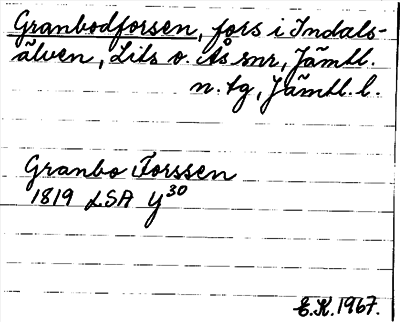 Granbodforsen, fors i Indals-
älven, Lits o. Ås snr, Jämtl.
n. tg, Jämtl. l.
Granbo Forssen
1819 LSA Y30
E.K. 1967.